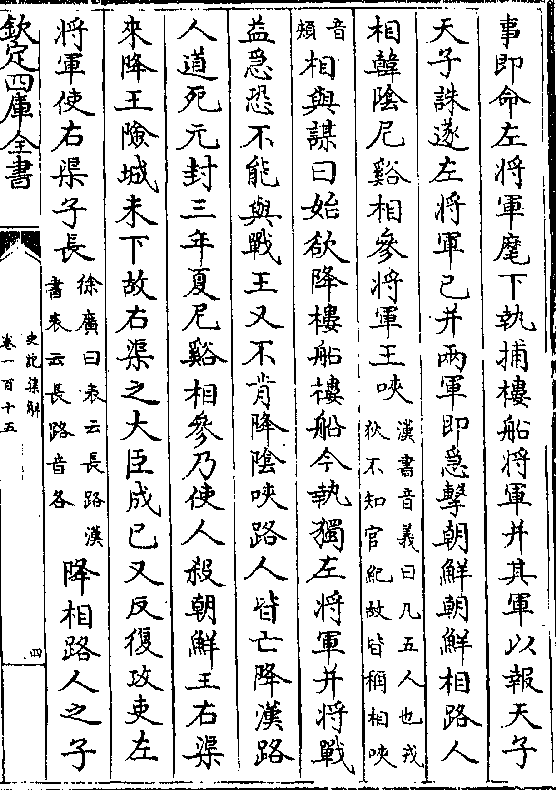 事即命左將軍麾下執捕樓船將軍并其軍以報天子
天子誅遂左將軍已并兩軍即急擊朝鮮朝鮮相路人
相韓陰尼谿相參將軍王唊漢書音義曰凡五人也戎狄不知官紀故皆稱相唊
音頰相與謀曰始欲降樓船樓船今執獨左將軍并將戰
益急恐不能與戰王又不肯降陰唊路人皆亡降漢路
人道死元封三年夏尼谿相參乃使人殺朝鮮王右渠
來降王險城未下故右渠之大臣成已又反復攻吏左
將軍使右渠子長徐廣曰表云長路漢書表云長路音各降相路人之子
欽定四庫全書
史記集解
卷一百十五
四